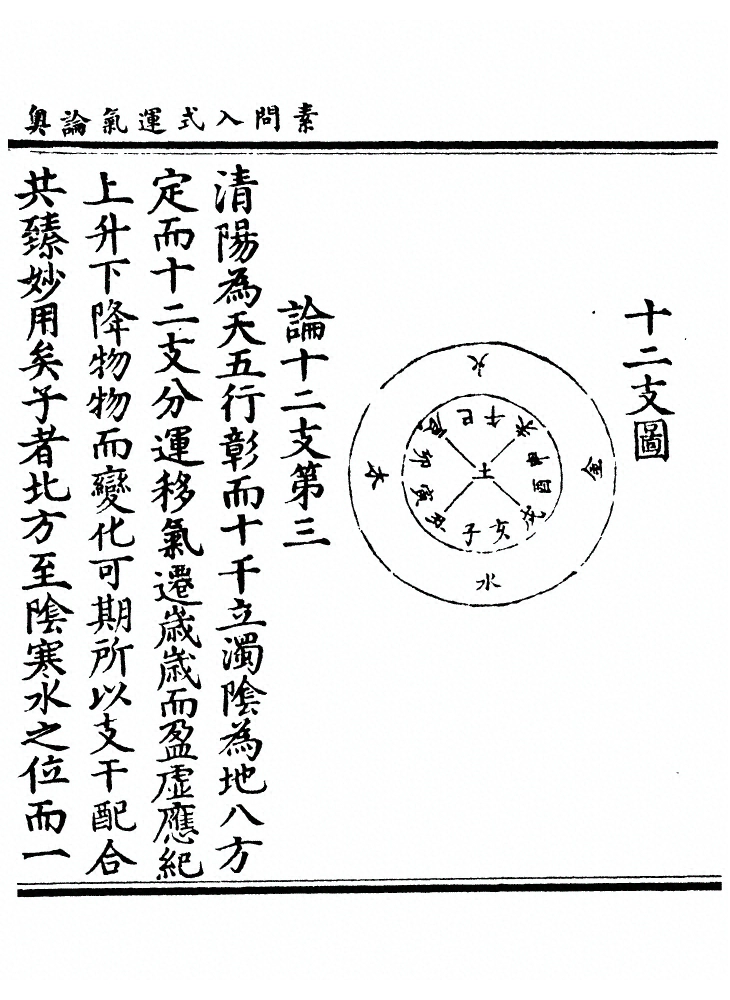 素問入式運氣論奧
十二支圖
火
金
水
木
土
子
丑
寅
卯
辰
巳
午
未
申
酉
戌
亥
論十二支第三
清陽為天五行彰而十干立濁陰為地八方
定而十二支分運移氣遷歲歲而盈虛應紀
上升下降物物而變化可期所以支干配合
共臻妙用矣子者北方至陰寒水之位而一